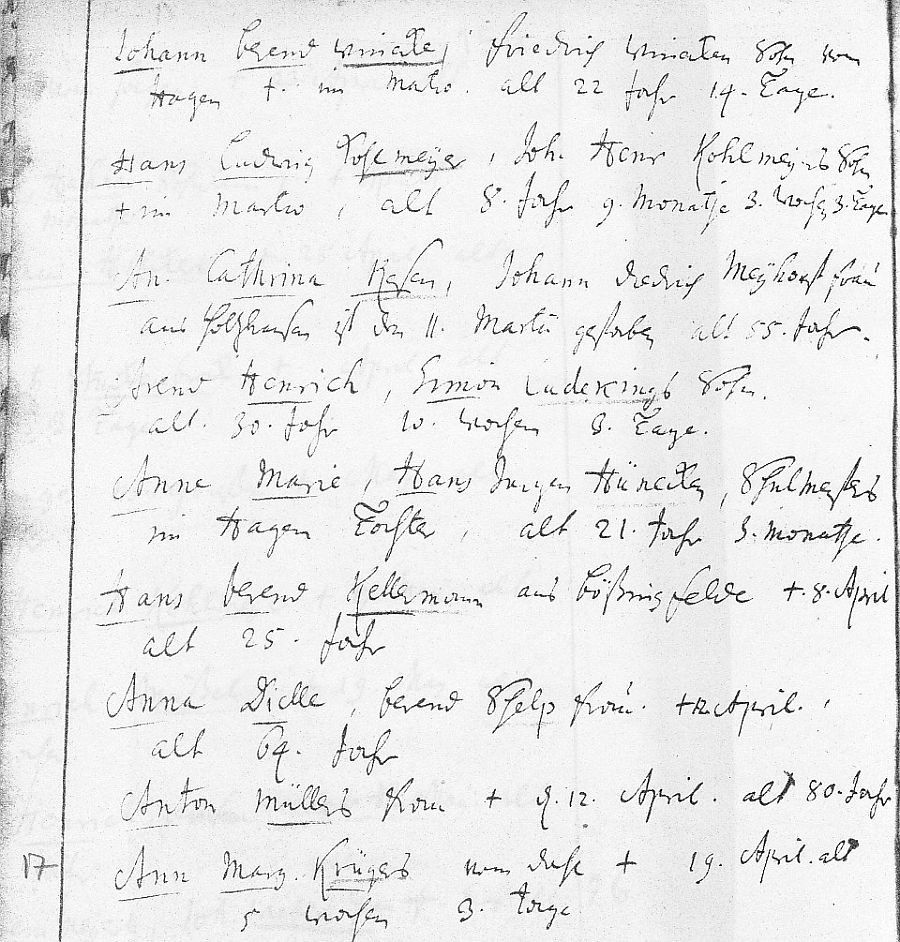 Johann berend winate, friedrich winaten Sohn von
Hagen †. im Martio. alt 22 Jahr 14. Tage.
Hans Ludwig Kohlmeyer, Joh. Henr Kohlmeyers Sohn
† im Martio, alt 8. Jahr 9. Monathe 3. wochen 3. Tage
An. Cathrina, Johann diedrich Meyhorst frau
aus Holzhausen ist den 11. Martii gestorben alt 55. Jahr.
Arend Henrich, Simon Ludekings Sohn.
alt. 30. Jahr 10. wochen 3. Tage.
Anne Marie, Hans Jurgen Hünecken, Schulmeisters
im Hagen Tochter, alt 21. Jahr 3. Monathe.
Hans berend Kellermann aus bößingfelde †. 8. April
alt 25. Jahr
Anna Dielle, berend Schelp frau. † 12. April.,
alt 64. Jahr
Anton Müllers frau † d. 12. April. alt 80. Jahr
17 Ann Marg. Krügers vom † 19. April. alt
5 wochen 3. tage